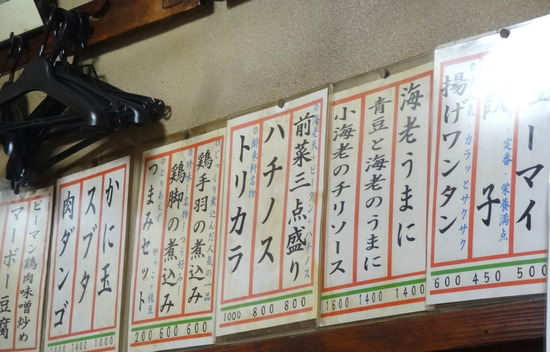 ューマイ
500
餃子
定番・栄養満点
450
揚げワンタン
カラッとサクサク
600
海老うまに
1400
青豆と海老のうまに
1400
小海老のチリソース
1600
前菜三点盛り
800
ハチノス
800
トリカラ
1000
じっくり煮込んだ人気の一品
鶏手羽の煮込み
600
鶏脚の煮込み
600
とりあえず
つまみセット
200
かに玉
スブタ
肉ダンゴ
ピーマン鶏肉味噌炒め
マーボー豆腐